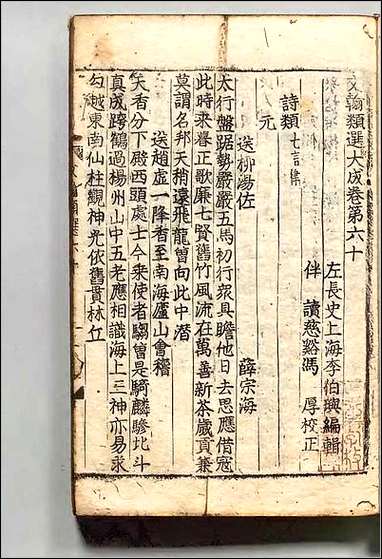 文翰類選大成卷第六十
左長史上海李伯璵編輯
伴讀慈谿馮厚校正
詩類 七言律
元
送柳湯佐 薛宗海
太行盤踞勢巖巖五馬初行衆具瞻他日去思應借寇
此時來暮正歌廉七賢舊竹風流在萬善新茶歲貢兼
莫謂名邦天稍遠飛龍曾向此中潛
送趙虚一降香至南海廬山會稽
天香分下殿西頭處士今來使者騶曾是騎麟驂北斗
真成跨鶴過楊州山中五老應相識海上三神亦易求
勾越東南仙柱觀神光依舊貫林丘